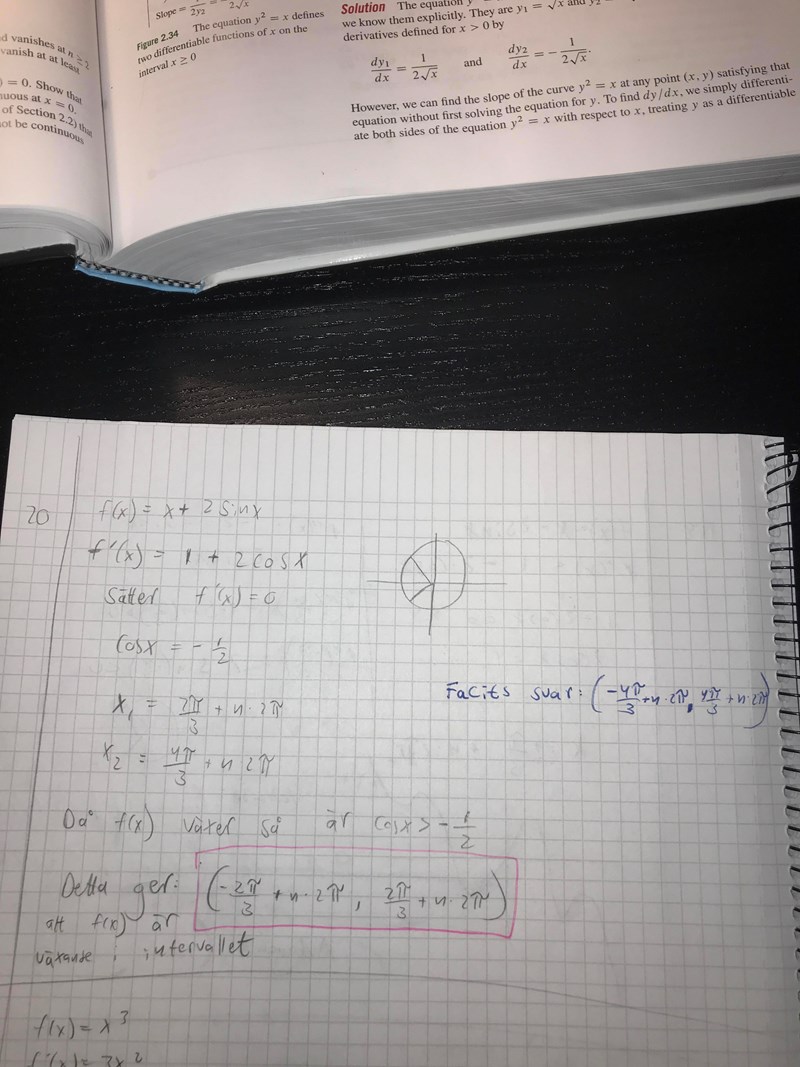 d vanishes at n ≥ 2
vanish at at least
) = 0. Show that
uous at x = 0.
of Section 2.2) that
not be continuous
Slope = 1/2y₂ = − 1/2√x
Figure 2.34 The equation y² = x defines
two differentiable functions of x on the
interval x ≥ 0
Solution The equation y
we know them explicitly. They are y₁ = √x and y₂ =
derivatives defined for x > 0 by
dy₁/dx = 1/2√x and dy₂/dx = − 1/2√x.
However, we can find the slope of the curve y² = x at any point (x, y) satisfying that
equation without first solving the equation for y. To find dy/dx, we simply differenti-
ate both sides of the equation y² = x with respect to x, treating y as a differentiable
20
f(x) = x + 2 sin x
f'(x) = 1 + 2 cos x
Sätter f'(x) = 0
Cos x = - 1/2
x₁ = 2π/3 + n · 2π
x₂ = 4π/3 + n 2π
Facits svar: (-4π/3 + n · 2π, 4π/3 + n · 2π)
Då f(x) växer så är cos x > - 1/2
Detta ger: (-2π/3 + n · 2π, 2π/3 + n · 2π)
att f(x) är
växande i intervallet
f(x) = x³
f'(x) = 3x²